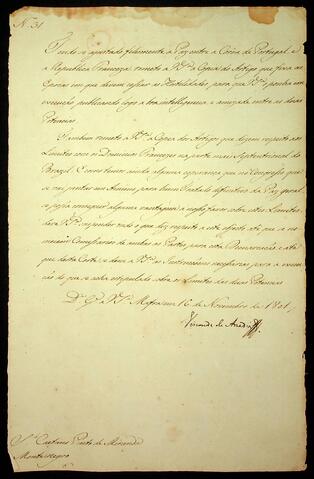 N. 31
Tendo-se ajustado felizmente a Paz entre a Coroa de Portugal, e a
Republica Franceza: remeto a V. S.ª a Copia do Artigo que fixa as
Epocas em que devem cessar as Hostilidades, para que V. S.ª ponha em
execução publicando logo a boa intelligencia e amizade entre as duas
Potencias
Tambem remeto a V. S.ª a Copia dos Artigos que dizem respeito aos
Limites com os Dominios Francezes na parte mais Septentrional do
Brazil. E como temos ainda alguma esperança que no Congresso que
se vai juntar em Amiens para hum Tratado definitivo da Paz geral
se possa conseguir alguma vantagem a nosso favor sobre estes Limites
dará V. S.ª suspender tudo o que diz respeito a este efeito até que se no
meiem Comissarios de ambas as Partes para esta Demarcação e até
que desta Corte se dem a V. S.ª as Instrucções necessarias para a execu
ção do que se acha estipulado sobre os Limites das duas Potencias
D.s G.e a V. S.ª Mafra em 16 de Novembro de 1801,
Visconde de Anadia
S.r Caetano Pinto de Miranda
Montenegro